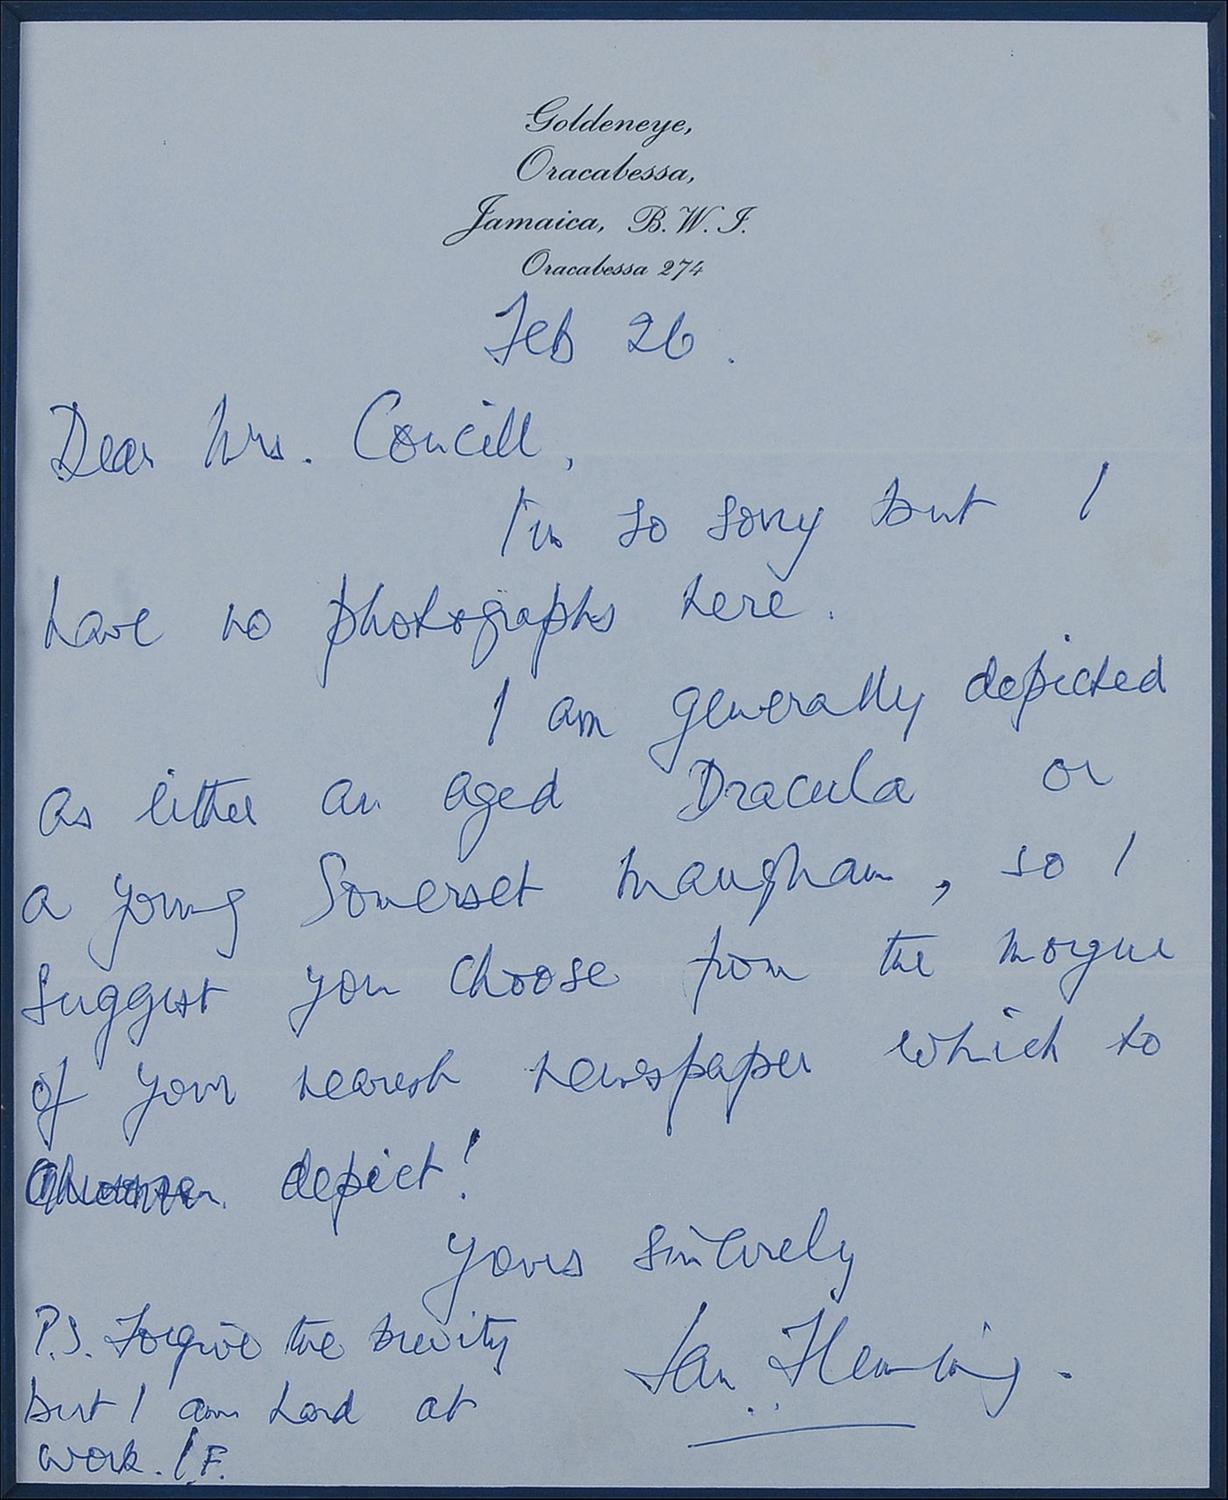 Goldeneye,
Oracabessa,
Jamaica, B.W.I.
Oracabessa 274
Feb 26.
Dear Mrs. Concill,
I'm so sorry but I
have no photographs here.
I am generally depicted
as either an aged Dracula or
a young Somerset Maugham, so I
suggest you choose from the morgue
of your nearest newspaper which to
depict!
Yours sincerely
Ian Fleming.
P.S. Forgive the brevity
but I am hard at
work. I.F.